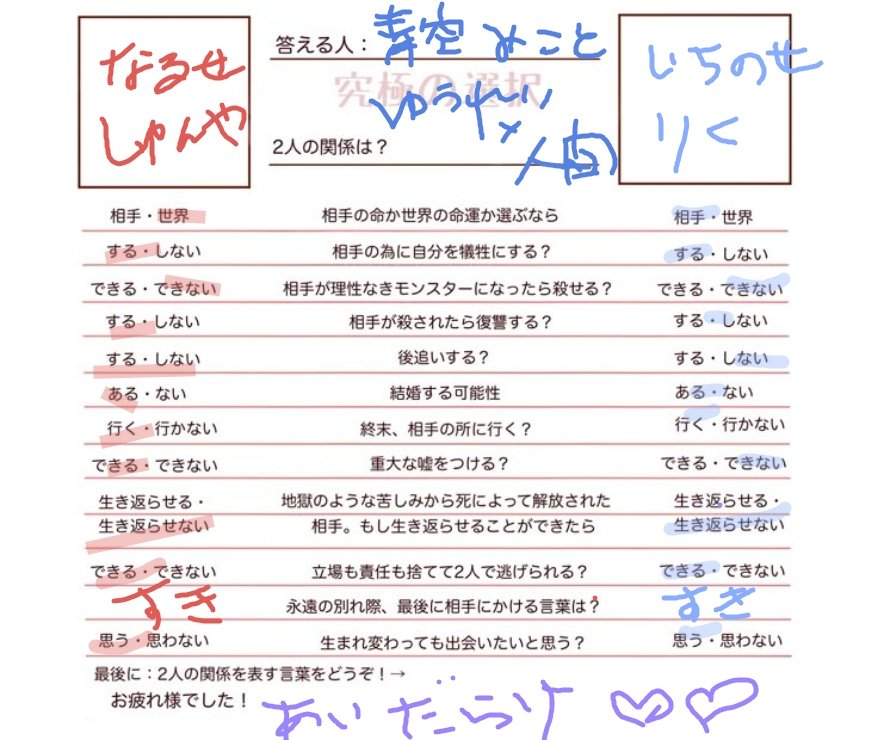 なるせ
しゅんや
答える人：青空みこと
究極の選択
ゆうれい
×
人間
2人の関係は？
いちのせ
りく
相手・世界 相手の命か世界の命運か選ぶなら 相手・世界
する・しない 相手の為に自分を犠牲にする？ する・しない
できる・できない 相手が理性なきモンスターになったら殺せる？ できる・できない
する・しない 相手が殺されたら復讐する？ する・しない
する・しない 後追いする？ する・しない
ある・ない 結婚する可能性 ある・ない
行く・行かない 終末、相手の所に行く？ 行く・行かない
できる・できない 重大な嘘をつける？ できる・できない
生き返らせる・ 地獄のような苦しみから死によって解放された 生き返らせる・
生き返らせない 相手。もし生き返らせることができたら 生き返らせない
できる・できない 立場も責任も捨てて2人で逃げられる？ できる・できない
すき 永遠の別れ際、最後に相手にかける言葉は？ すき
思う・思わない 生まれ変わっても出会いたいと思う？ 思う・思わない
最後に：2人の関係を表す言葉をどうぞ！→
お疲れ様でした！
あいだらけ♡♡